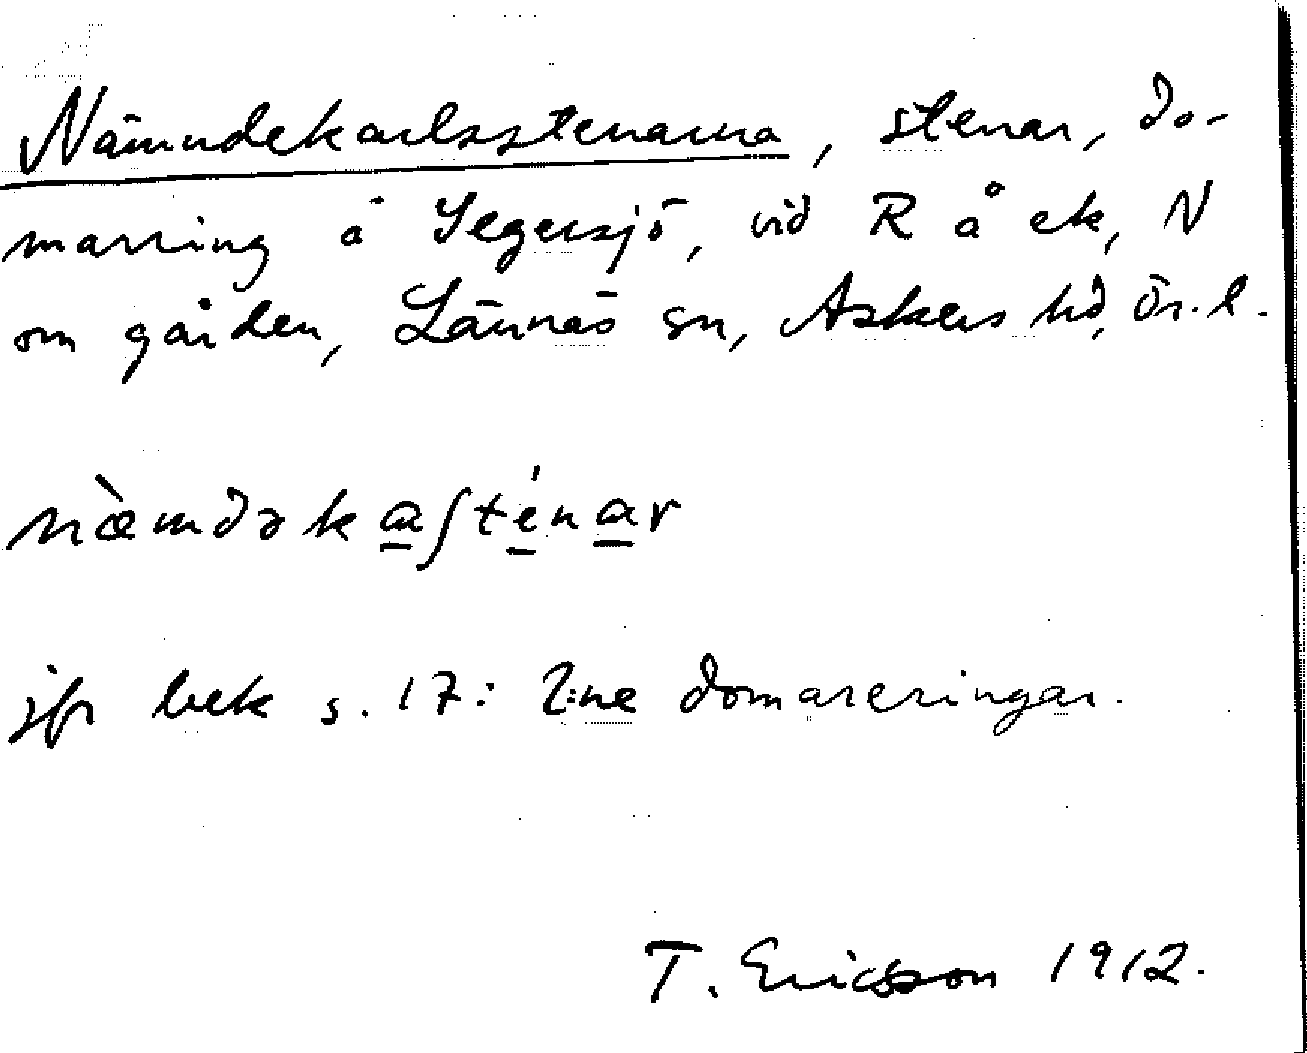 Nämndekarlsstenarna, stenar, do-
marring å Segersjö, vid R å ek, N
om gården, Lännäs sn, Askers hd, Ör. l.
næ̀mdəkaʃténar
jfr bek s. 17: 2:ne domareringar.
T. Ericsson 1912.